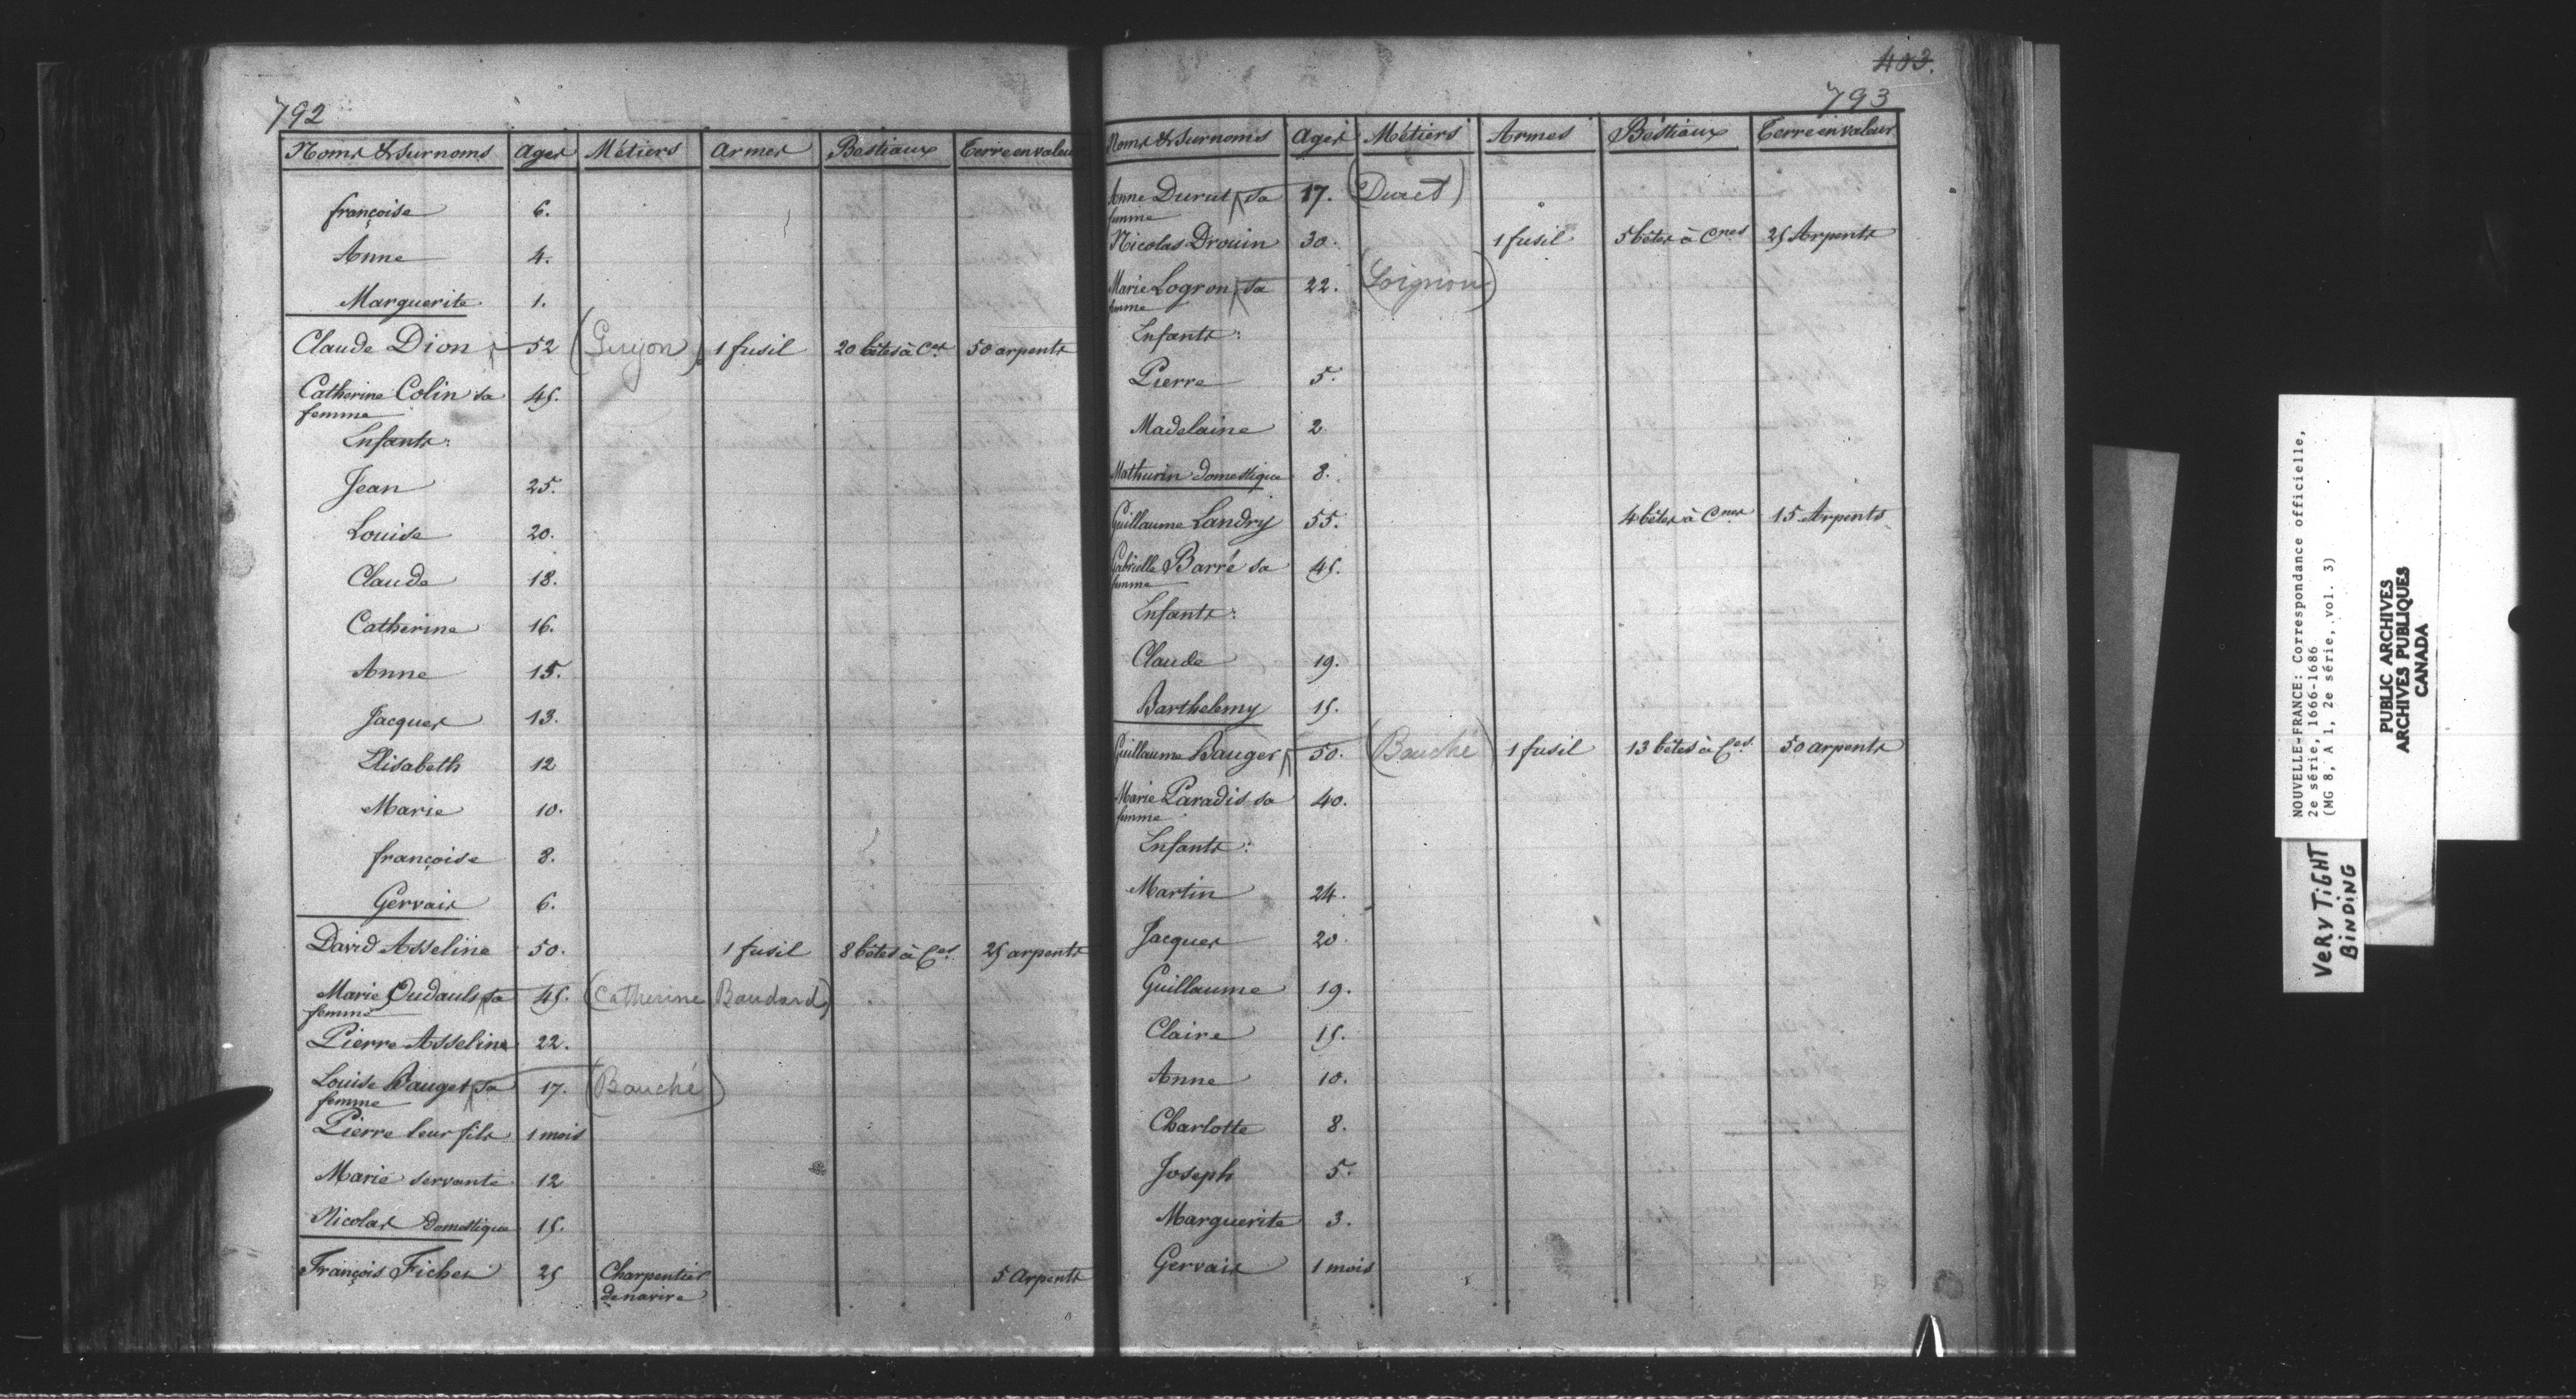 792
Noms & Surnoms Ages Métiers Armes Bestiaux Terre en valeur
françoise 6.
Anne 4.
Marguerite 1.
Claude Dion 52 (Guyon) 1 fusil 20 bêtes à C.es 50 arpents
Catherine Colin sa 45.
femme
Enfants:
Jean 25.
Louise 20.
Claude 18.
Catherine 16.
Anne 15.
Jacques 13.
Elisabeth 12
Marie 10.
françoise 8.
Gervais 6.
David Asseline 50. 1 fusil 8 bêtes à C.es 25 arpents
Marie Oudault sa 45. (Catherine Baudard)
femme
Pierre Asseline 22.
Louise Bauget sa 17. (Bauché)
femme
Pierre leur fils 1 mois
Marie servante 12
Nicolas Domestique 15.
François Ficher 25 Charpentier 5 Arpents
de navire
403.
793
Noms & Surnoms Ages Métiers Armes Bestiaux Terre en valeur
Anne Durut sa 17. (Duret)
femme
Nicolas Drouin 30. 1 fusil 5 bêtes à Cnes 25 Arpents
Marie Logron sa 22. (Loignon)
femme
Enfants:
Pierre 5.
Madelaine 2
Mathurin Domestique 8.
Guillaume Landry 55. 4 bêtes à Cnes 15 Arpents
Gabrielle Barré sa 45.
femme
Enfants:
Claude 19.
Barthelemy 15.
Guillaume Bauger 50. (Bauché) 1 fusil 13 bêtes à C.es 50 arpents
Marie Paradis sa 40.
femme
Enfants:
Martin 24.
Jacques 20.
Guillaume 19.
Claire 15.
Anne 10.
Charlotte 8.
Joseph 5.
Marguerite 3.
Gervais 1 mois
NOUVELLE-FRANCE: Correspondance officielle,
2e série, 1666-1686
(MG 8, A 1, 2e série, vol. 3)
PUBLIC ARCHIVES
ARCHIVES PUBLIQUES
CANADA
VERY TIGHT
BINDING